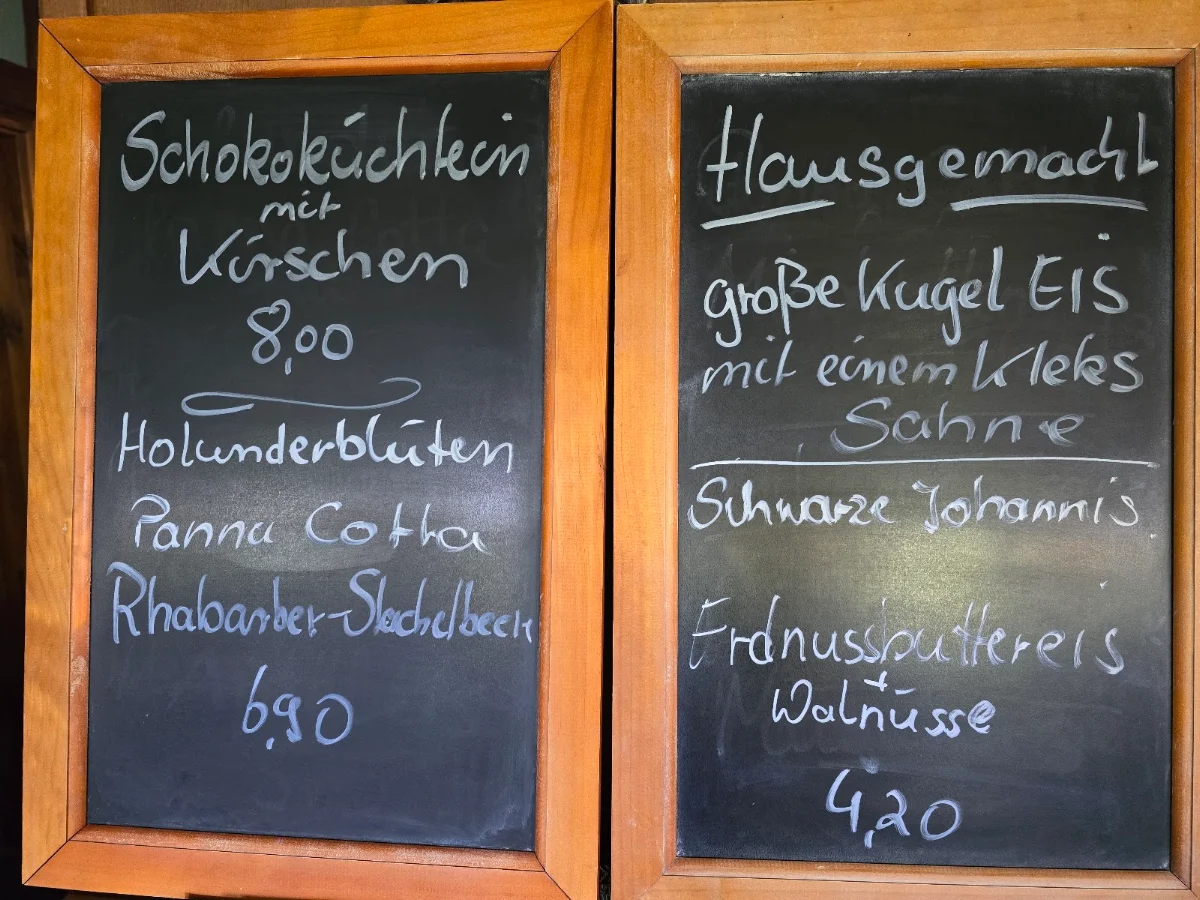 Schokoküchlein
mit
Kirschen
8,00
Holunderblüten
Panna Cotta
Rhabarber-Stachelbeere
6,90
Hausgemacht
große Kugel Eis
mit einem Kleks
Sahne
Schwarze Johannis
Erdnussbuttereis
+
Walnüsse
4,20